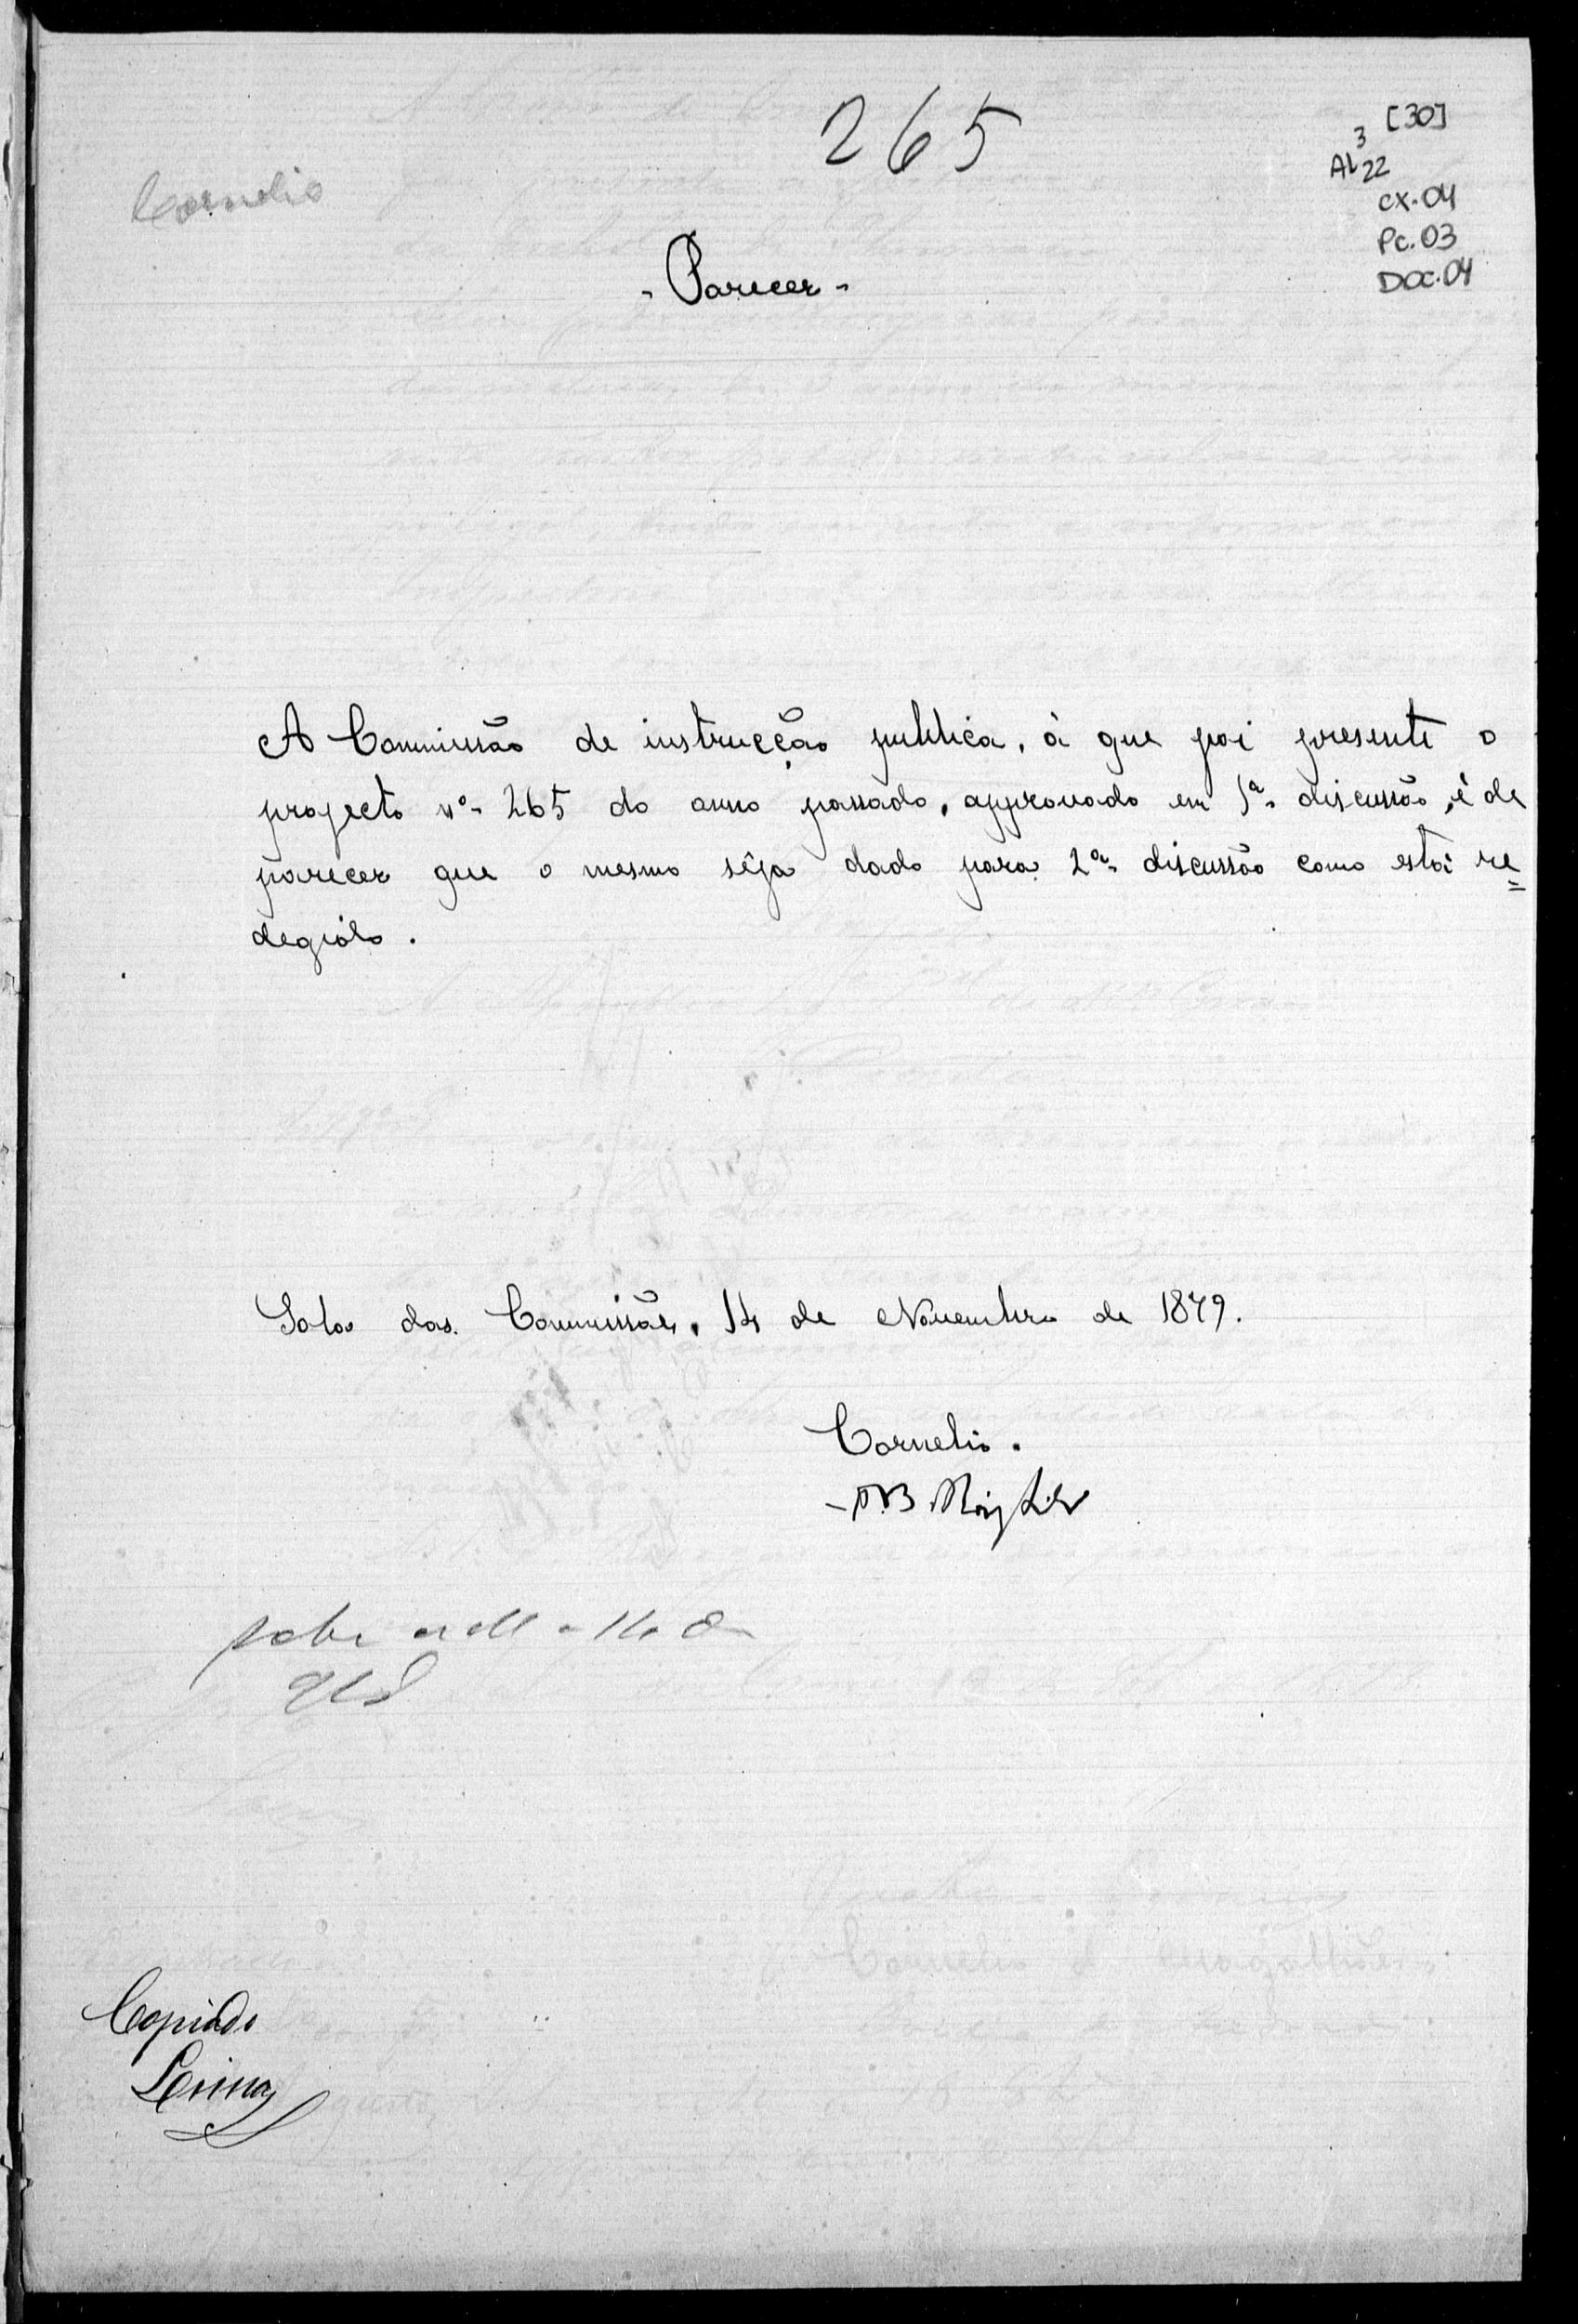 265
[30]
3
AL 22
CX. 04
Pc. 03
DOC. 04
Cornelio
- Parecer -
A Commissão de instrucção publica, à que foi presente o
projecto nº 265 do anno passado, approvado em 1ª discussão, é de
parecer que o mesmo sêja dado para 2ª discussão como está re=
degido.
Sala das Commissões, 14 de Novembro de 1879.
Cornelio.
Copiado
Lima